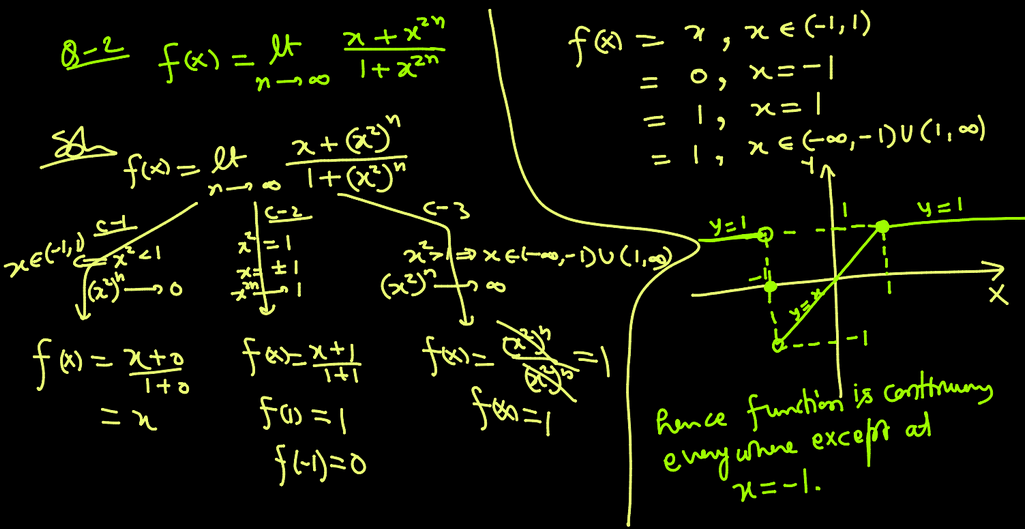 Q-2 f(x) = lt n→∞ (x + x²ⁿ)/(1 + x²ⁿ)
Sol. f(x) = lt n→∞ (x + (x²)ⁿ)/(1 + (x²)ⁿ)
C-1
x∈(-1,1) ⇐ x² < 1
(x²)ⁿ → 0
f(x) = (x+0)/(1+0)
= x
C-2
x² = 1
x = ±1
x²ⁿ → 1
f(x) = (x+1)/(1+1)
f(1) = 1
f(-1) = 0
C-3
x² > 1 ⇒ x∈(-∞,-1)∪(1,∞)
(x²)ⁿ → ∞
f(x) = (x²)ⁿ/(x²)ⁿ = 1
f(x) = 1
f(x) = x, x∈(-1,1)
= 0, x = -1
= 1, x = 1
= 1, x∈(-∞,-1)∪(1,∞)
Y
y=1 1 y=1
-1 1 X
y=x
-1
hence function is continuous
everywhere except at
x = -1.